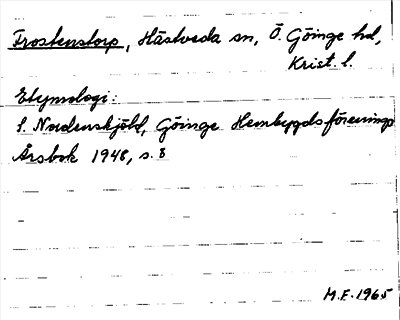 Trostenstorp, Hästveda sn, Ö. Göinge hd,
Krist. l.
Etymologi:
S. Nordenskjöld, Göinge Hembygdsförenings
Årsbok 1948, s. 8
M.F. 1965